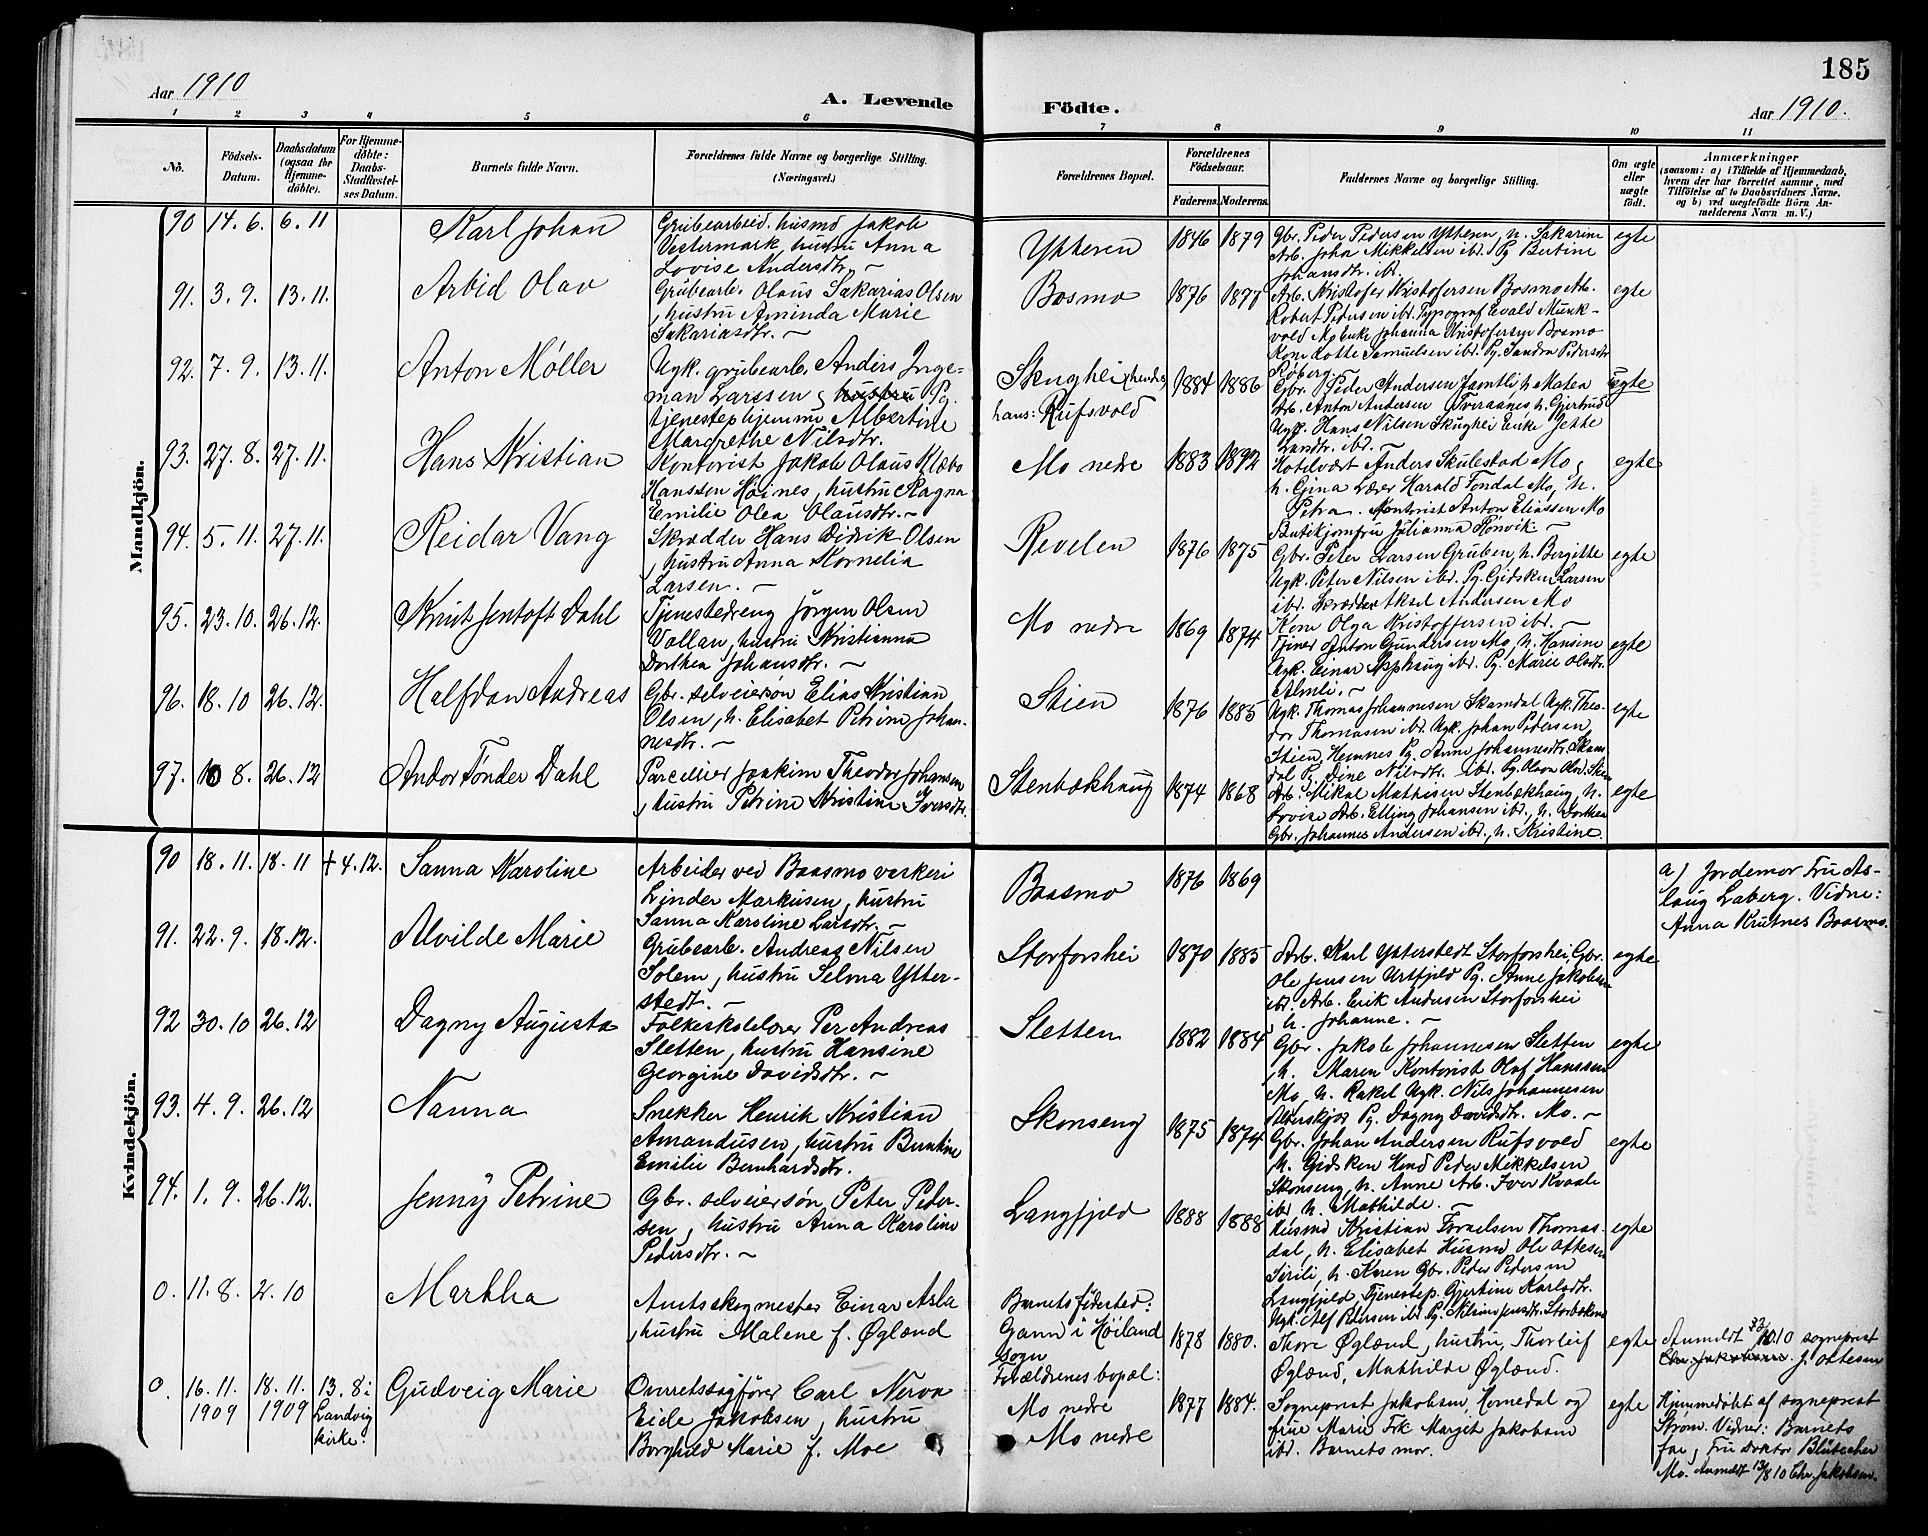 185
Aar 1910
A. Levende
Födte.
Aar 1910.
1 2 3 4 5 6 7 8 9 10 11
No.
Födsels-
Datum.
Daabsdatum
(ogsaa for
Hjemme-
döbte).
For Hjemme-
döbte:
Daabs-
Stadfæstel-
ses Datum.
Barnets fulde Navn.
Forældrenes fulde Navne og borgerlige Stilling.
(Næringsvei.)
Forældrenes Bopæl.
Forældrenes
Födselsaar.
Faderens. Moderens.
Faddernes Navne og borgerlige Stilling.
Om ægte
eller
uægte
födt.
Anmærkninger
(saasom: a) i Tilfælde af Hjemmedaab,
hvem der har forrettet samme, med
Tilföielse af to Daabsvidners Navne.
og b) ved uægtefödte Börn An-
melderens Navn m. V.)
Mandkjön.
90 14. 6. 6. 11 Karl Johan
Grubearbeid. husmd Jakob
Vestermark, hustru Anna
Lovise Andersdtr. –
Ytteren 1846 1879
Gbr. Peder Pedersen Ytteren, h. Sakarine
Arb. John Mikkelsen ibd. Pg Bertine
Johansdtr. ibd.
egte
91. 3. 9. 13. 11. Arbid Olav
Grubearb. Olaus Sakarias Olsen
, hustru Aminda Marie
Sakariasdtr. –
Bosmo 1876 1877
Arb. Kristofer Kristofersen Bosmo Arb.
Robert Pedersen ibd. Typograf Evald Munk-
vold Mo Enke Johanna Kristofersen Bosmo
Kone Lotte Samuelsen ibd. Pg. Sandra Pedersdtr
Røberg. –
egte
92. 7. 9. 13. 11. Anton Møller
Ugk. grubearb. Anders Inge-
man Larssen, hustru Pg.
tjenestep hjemme Albertine
Margrethe Nilsdtr.
Skughei (hendes)
hans: Rufsvold
1884 1886
Gbr. Peder Andersen Jamtli h. Matea
Arb. Anton Andersen Tveraanes h. Gjertrud
Ugk. Hans Nilsen Skughei Enke Jette
Larsdtr. ibd. –
uegte
93. 27. 8. 27. 11. Hans Kristian
Kontorist Jakob Olaus Klæbo
Hanssen Høines, hustru Ragna
Emilie Olea Olausdtr. –
Mo nedre 1883 1892
Hotelvært Anders Skulestad Mo,
h. Gina Lærer Harald Fondal Mo, h.
Petra. Kontorist Anton Eliassen Mo
Butikjomfru Julianna Rønvik. –
egte
94. 5. 11. 27. 11. Reidar Vang
Skrædder Hans Didrik Olsen
, hustru Anna Kornelia
Larsen. –
Revelen 1876 1875
Gbr. Peter Larsen Gruben, h. Bergitte
Ugk. Peter Nilsen ibd. Pg. Gidsken Larsen
ibd. Skrædder Aksel Andersen Mo
Kone Olga Kristoffersen ibd. –
egte
95. 23. 10. 26. 12. Knut Jentoft Dahl
Tjenestedreng Jørgen Olsen
Vollan, hustru Kristianna
Dorthea Johansdtr. –
Mo nedre 1869 1874
Tjener Anton Gundersen Mo, h. Hansine
Ugk. Einar Apphaug ibd. Pg. Marie Olsdtr.
Almli. –
egte
96. 18. 10 26. 12. Halfdan Andreas
Gbr. selveiersøn Elias Kristian
Olsen, h. Elisabet Petrine Johan-
nesdtr. –
Stien 1876 1885
Ugk. Thomas Johannesen Skamdal Ugk. Theo-
dor Thomasen ibd. Ugk. Johan Pedersen
Stien, Hemnes Pg. Anne Johannesdtr. Skam-
dal Pg. Dine Nilsdtr. ibd. Pg. Olava Olsd. Stien
egte
97. 10 8. 26. 12 Andor Tønder Dahl
Parcellier Joakim Theodor Johansen
, hustru Petrine Kristine Iversdtr.
Stenbækhaug 1874 1868
Arb. Mikal Mathisen Stenbækhaug, h.
Lovise Arb. Elling Johansen ibd., h. Dorthea
Gbr. Johannes Andersen ibd., h. Kristine
egte
Kvindekjön.
90 18. 11. 18. 11 † 4. 12. Sanna Karoline
Arbeider ved Baasmo verkeri
Linder Markusen, hustru
Sanna Karoline Larsdtr. –
Baasmo 1876 1869
a) Jordemor Fru As-
laug Laberg. Vidne:
Anna Krutnes Baasmo.
91. 22. 9. 18. 12. Alvilde Marie
Grubearb. Andreas Nilsen
Solem, hustru Selma Ytter-
stedt. –
Storforshei 1870 1885
Arb. Karl Ytterstedt Storforshei, Gbr.
Ole Jensen Urtfjeld Pg. Anne Jakobsen
ibd. Arb. Erik Andersen Storforshei
, h. Johanne. –
egte
92 30. 10 26. 12 Dagny Augusta
Folkeskolelærer Per Andreas
Sletten, hustru Hansine
Georgine Davidsdtr. –
Sletten 1882 1884
Gbr. Jakob Johannesen Sletten
, h. Maren Kontorist Olaf Hanssen
Mo, h. Rakel Ugk. Nils Johannesen
Akerskjør Pg. Dagny Davidsdtr. Mo. –
egte
93. 4. 9. 26. 12 Nanna
Snekker Henrik Kristian
Amandusen, hustru Berntine
Emilie Bernhardsdtr.
Skonseng 1875 1874
Gbr. Johan Andersen Rufsvold
h. Gidsken Hmd Peder Mikkelsen
Skonseng, h. Anne Arb. Iver Kvaale
ibd h. Mathilde. –
egte
94. 1. 9. 26. 12. Jenny Petrine
Gbr. selveiersøn Peter Peder-
sen, hustru Anna Karoline
Pedersdtr. –
Langfjeld 1888 1888
Husmd Kristian Tørnelsen Thomas-
dal, h. Elisabet Husmd Ole Ottesen
Sirili, h. Karen Gbr. Peder Pedersen
Langfjeld Tjenestep. Gjertine Karlsdtr.
Ugk. Alf Pedersen ibd Pg. Nilsine Jensdtr. Storbækmo
egte
0. 11. 8. 2. 10 Martha
Amtsskogmester Einar Asla
, hustru Malene f. Øglænd
Barnets fødested:
Gann i Høiland
sogn
Forældrenes bopæl:
Mo nedre
1878 1880.
Thore Øglænd, hustru, Thorleif
Øglænd, Mathilde Øglænd.
egte
Anmeldt 23/10.10 sogneprest
Chr. Jakobsen. J. Ottesen
0. 16. 11. 1909 18. 11. 1909 13. 8 i
Landvig
kirke.
Gudveig Marie
Overretssagfører Carl Nerva
Eide Jakobsen, hustru
Borghild Marie f. Moe
Mo nedre 1877 1884.
Sogneprest Jakobsen, Hornedal og
frue Marie Frk Margit Jakobsen
ibd. Barnets mor.
egte
Hjemmedøbt af sogneprest
Strøm. Vidner: Barnets
far, Fru Doktor Blütecher
Mo. Anmeldt 13/8 10 Chr. Jakobsen.